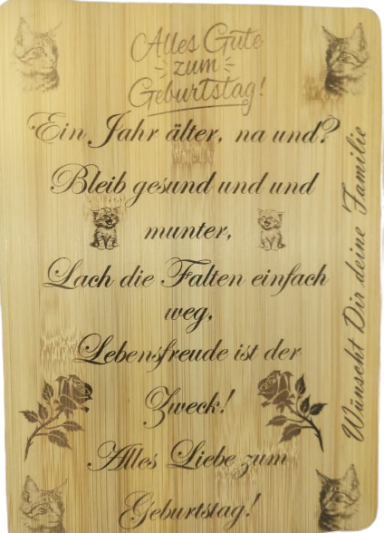 Alles Gute
zum
Geburtstag!
Ein Jahr älter, na und?
Bleib gesund und und
munter,
Lach die Falten einfach
weg,
Lebensfreude ist der
Zweck!
Alles Liebe zum
Geburtstag!
Wünscht Dir deine Familie